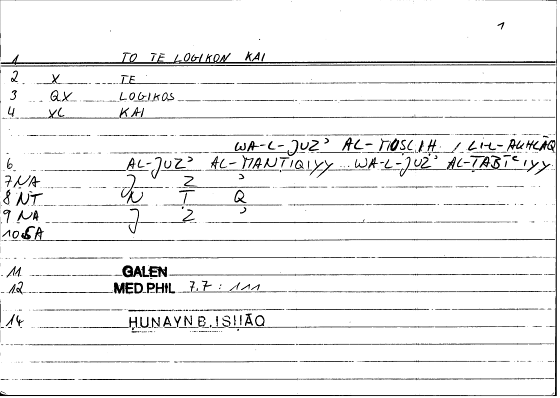 1
1 TO TE LOGIKON KAI
2 X TE
3 QX LOGIKOS
4 XL KAI
WA-L-JUZʾ AL-MUSLIH / LIL-AKHLĀQ
6 AL-JUZʾ AL-MANTIQIYY WA-L-JUZʾ AL-TABĪʿIYY
7 NA J Z ʾ
8 NT N T Q
9 NA J Z ʾ
10 SA
11 GALEN
12 MED.PHIL 7.7 : 111
14 HUNAYN B. ISHĀQ